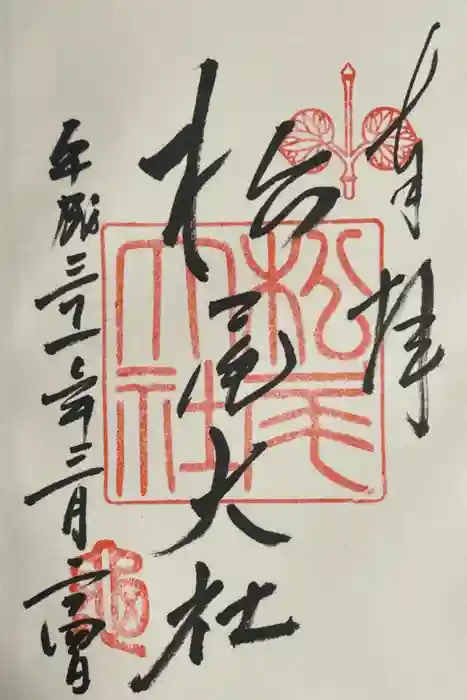 奉拝
松尾大社
平成三十一年三月二十四日
松尾
大社
亀